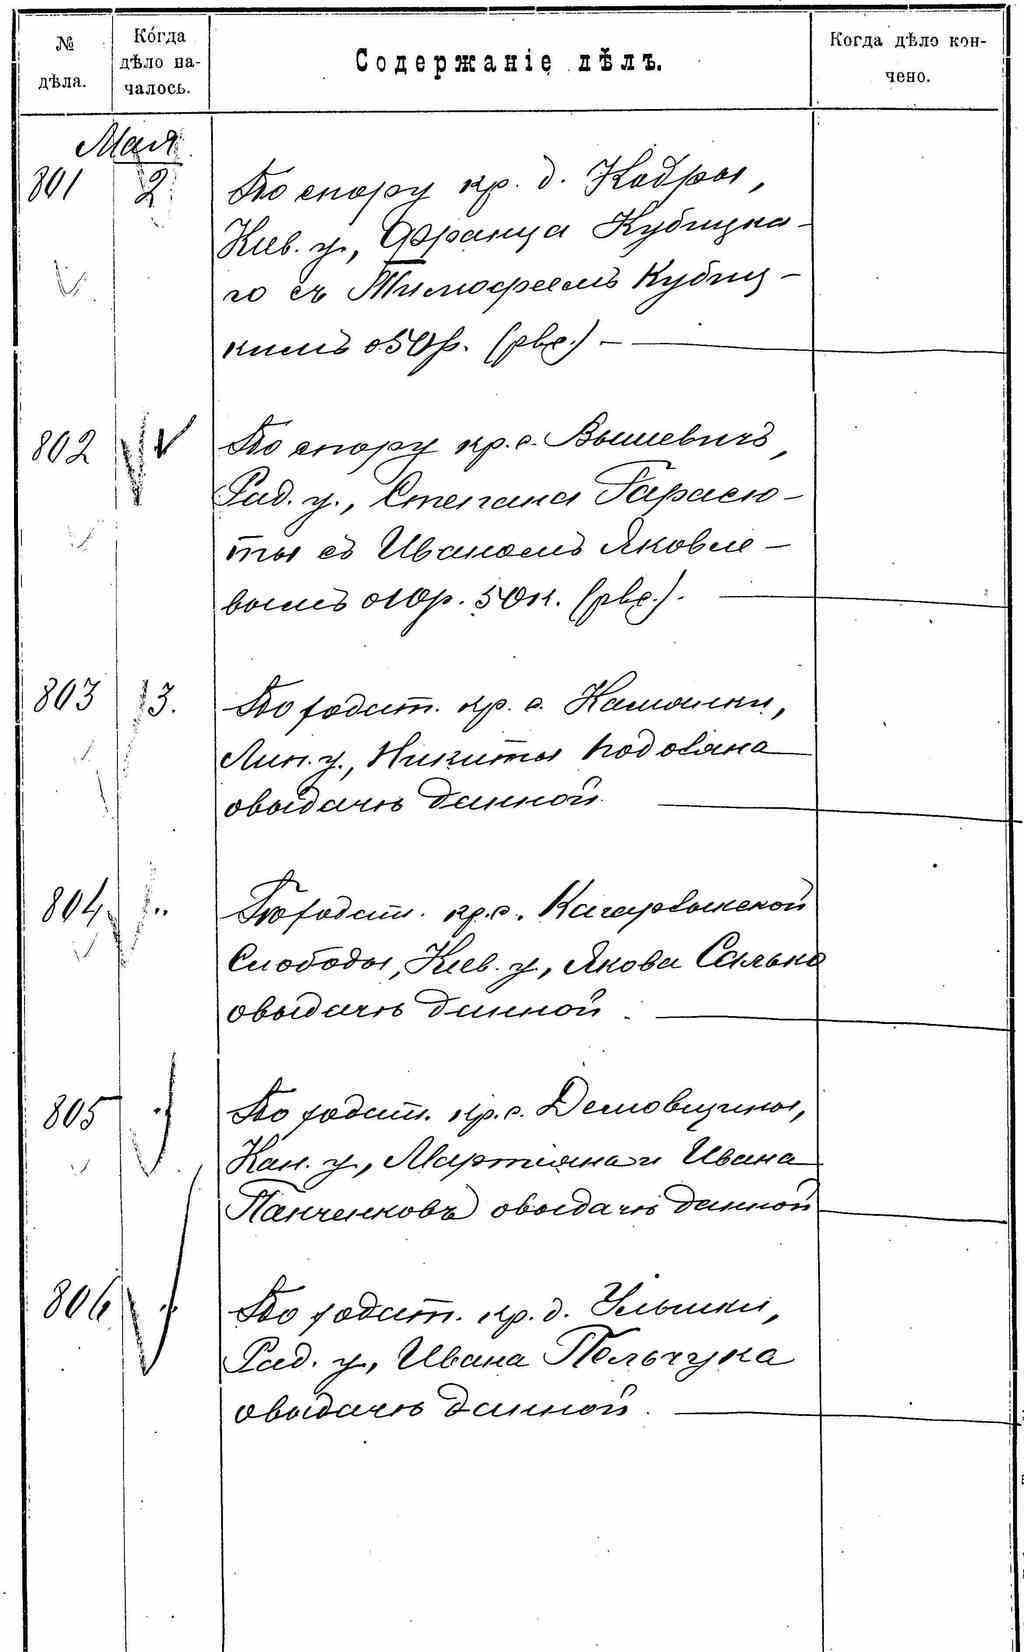 №
дѣла.
Когда
дѣло на-
чалось.
Содержаніе дѣлъ.
Когда дѣло кон-
чено.
Мая
801 2 По спору кр. д. Кодры,
Кіев. у., Франца Кубицка-
го съ Тимофеемъ Кубиц-
кимъ о 50 р. (рвх.) —
802 По спору кр. с. Вышевичъ,
Рад. у., Степана Тарасю-
ты съ Иваномъ Яковле-
вымъ о 10 р. 50 к. (рвх.). —
803 3. По ходат. кр. с. Камянки,
Лип. у., Никиты Подоляна
о выдачѣ данной. —
804 " По ходат. кр. с.
Слободы, Кіев. у., Якова
о выдачѣ данной. —
805 " По ходат. кр. с. Демовщины,
Кан. у., Мартіяна и Ивана
Панченковъ о выдачѣ данной —
806 " По ходат. кр. д.
Рад. у., Ивана Польчука
о выдачѣ данной. —